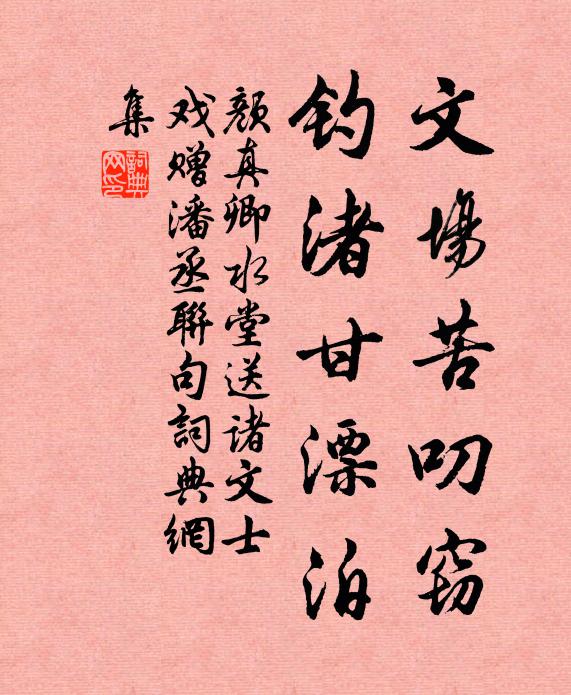 文場苦叨窃
钓渚甘漂泊
颜真卿水堂送诸文士
戏赠潘丞联句詞典網
集
詞典網印